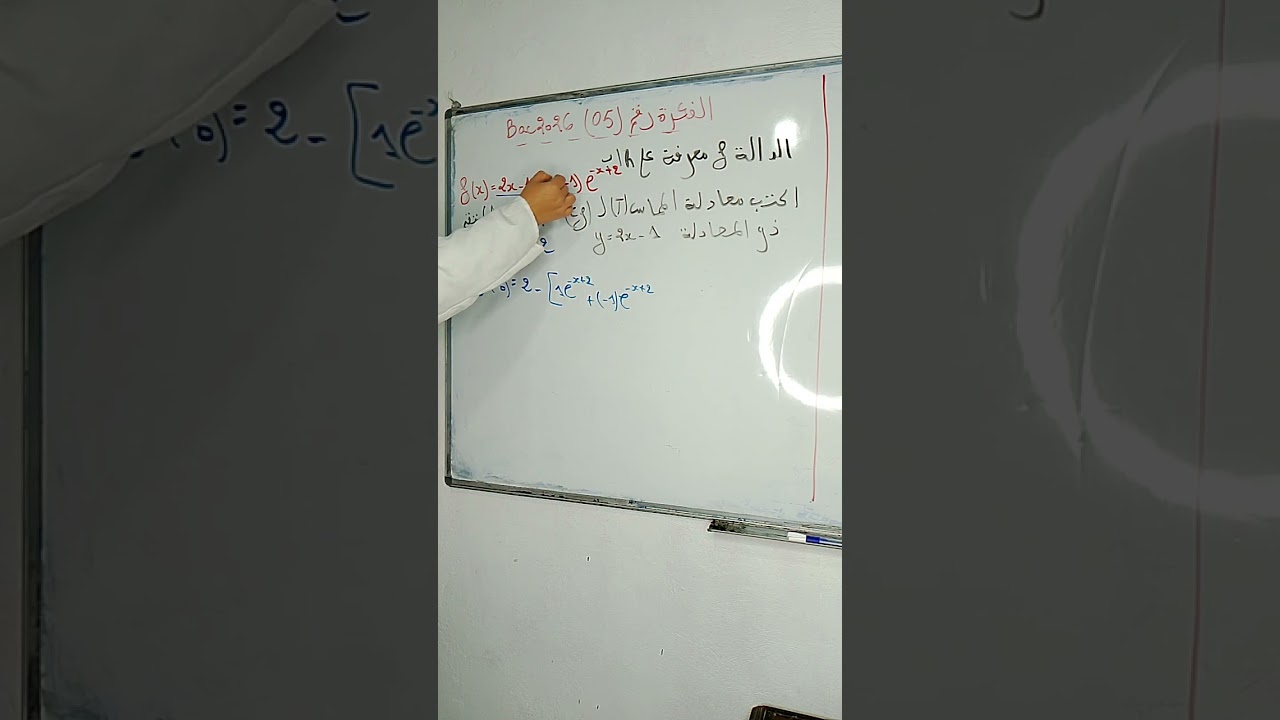 الفكرة رقم (05) Bac 2026
الدالة f معرفة على R بـ
f(x) = 2x-1) e^{-x+2}
اكتب معادلة المماس (T) لـ (Cf)
ذو المعادلة y = 2x - 1
2
(0) = 2 - [1e^{-x+2} + (-1)e^{-x+2}